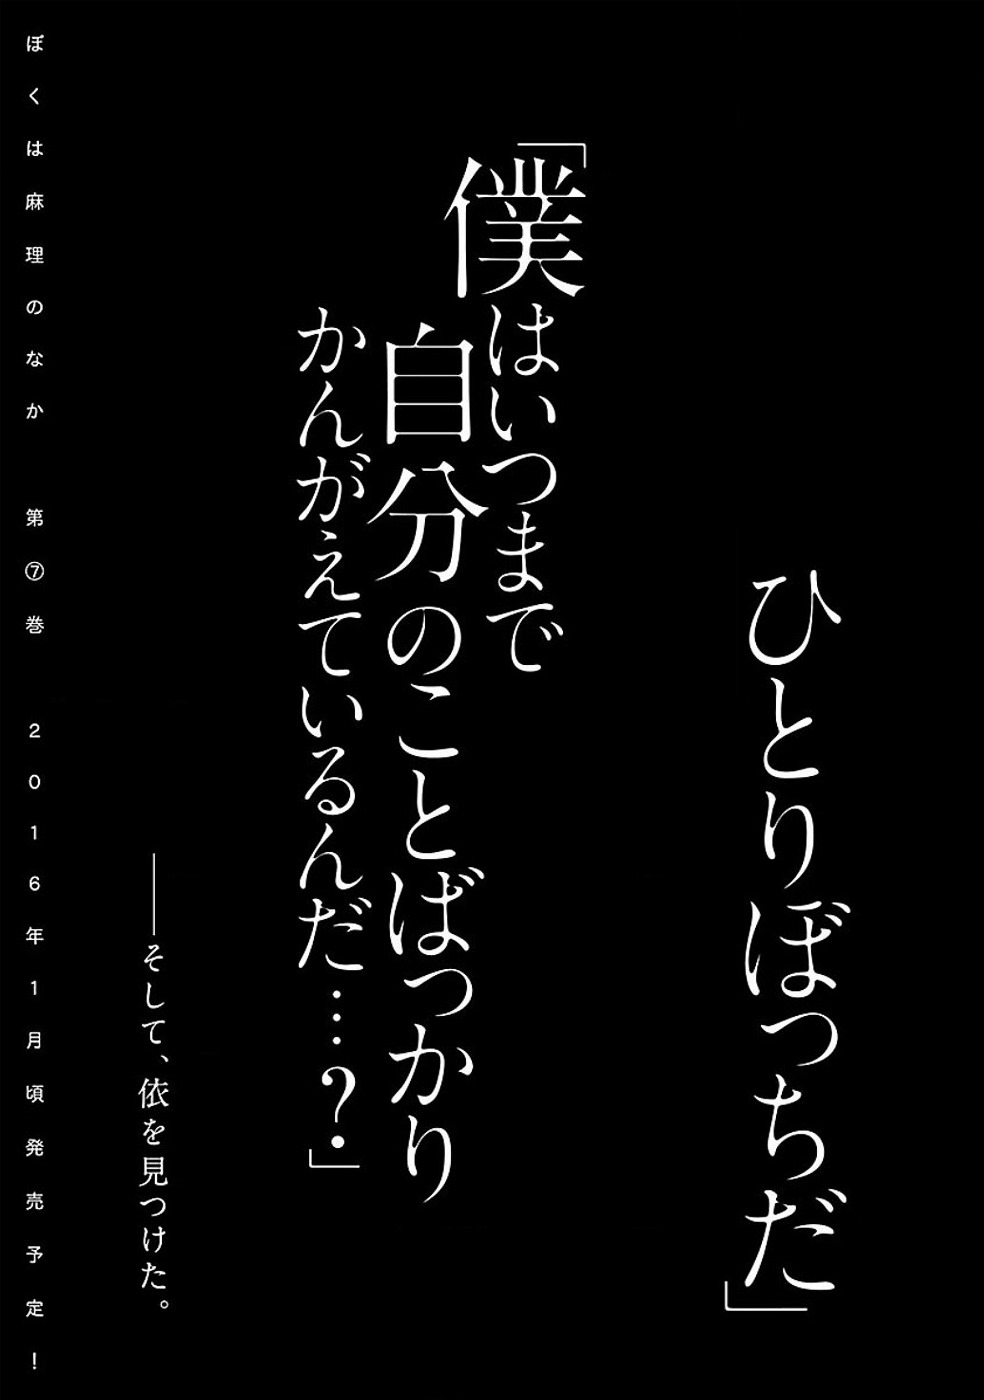 ひとりぼっちだ」
「僕はいつまで
自分のことばっかり
かんがえているんだ…?」
――そして、依を見つけた。
ぼくは麻理のなか 第⑦巻 2016年1月頃発売予定!